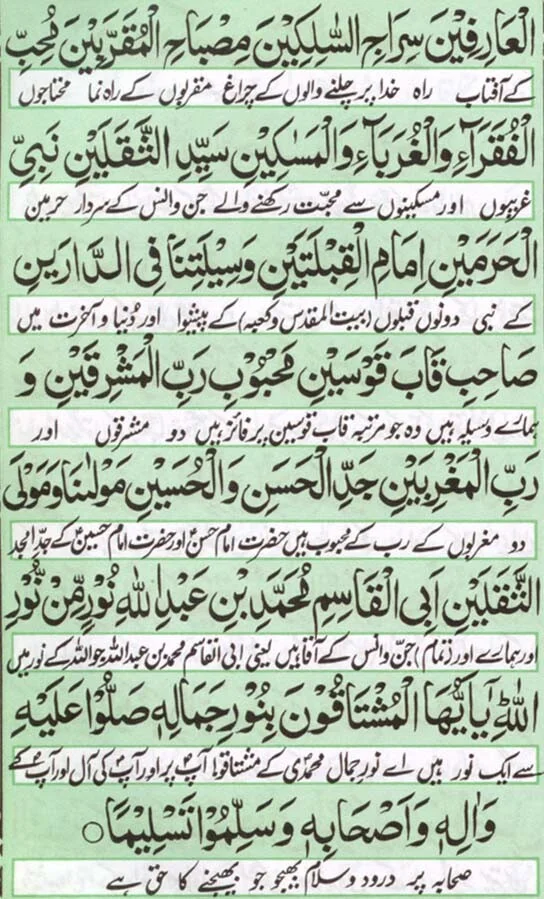 الْعَارِفِيْنَ سِرَاجِ السَّالِكِيْنَ مِصْبَاحِ الْمُقَرَّبِيْنَ مُحِبِّ
کے آفتاب راہ خدا پر چلنے والوں کے چراغ مقربوں کے راہ نما محتاجوں
الْفُقَرَآءِ وَالْغُرَبَآءِ وَالْمَسٰكِيْنِ سَيِّدِ الثَّقَلَيْنِ نَبِيِّ
غریبوں اور مسکینوں سے محبت رکھنے والے جن وانس کے سردار حرمین
الْحَرَمَيْنِ اِمَامِ الْقِبْلَتَيْنِ وَسِيْلَتِنَا فِى الدَّارَيْنِ
کے نبی دونوں قبلوں (بیت المقدس وکعبہ) کے پیشوا اور دُنیا و آخرت میں
صَاحِبِ قَابَ قَوْسَيْنِ مَحْبُوْبِ رَبِّ الْمَشْرِقَيْنِ وَ
ہمارے وسیلہ ہیں وہ جو مرتبہ قاب قوسین پر فائز ہیں دو مشرقوں اور
رَبِّ الْمَغْرِبَيْنِ جَدِّ الْحَسَنِ وَالْحُسَيْنِ مَوْلٰنَا وَمَوْلَى
دو مغربوں کے رب کے محبوب ہیں حضرت امام حسنؓ اور حضرت امام حسینؓ کے جدِّ امجد
الثَّقَلَيْنِ اَبِى الْقَاسِمِ مُحَمَّدِ بْنِ عَبْدِ اللّٰهِ نُوْرٍ مِّنْ نُّوْرِ
اور ہمارے اور (تمام) جن وانس کے آقا ہیں یعنی ابی القاسم محمد بن عبداللہ جو اللہ کے نور میں
اللّٰهِ يٰٓاَيُّهَا الْمُشْتَاقُوْنَ بِنُوْرِ جَمَالِهٖ صَلُّوْا عَلَيْهِ
سے ایک نور ہیں اے نورِ جمال محمدیؐ کے مشتاقو! آپؐ پر اور آپؐ کی آل اور آپؐ کے
وَاٰلِهٖ وَاَصْحَابِهٖ وَسَلِّمُوْا تَسْلِيْمًا ○
صحابہ پر درود وسلام بھیجو جو بھیجنے کا حق ہے